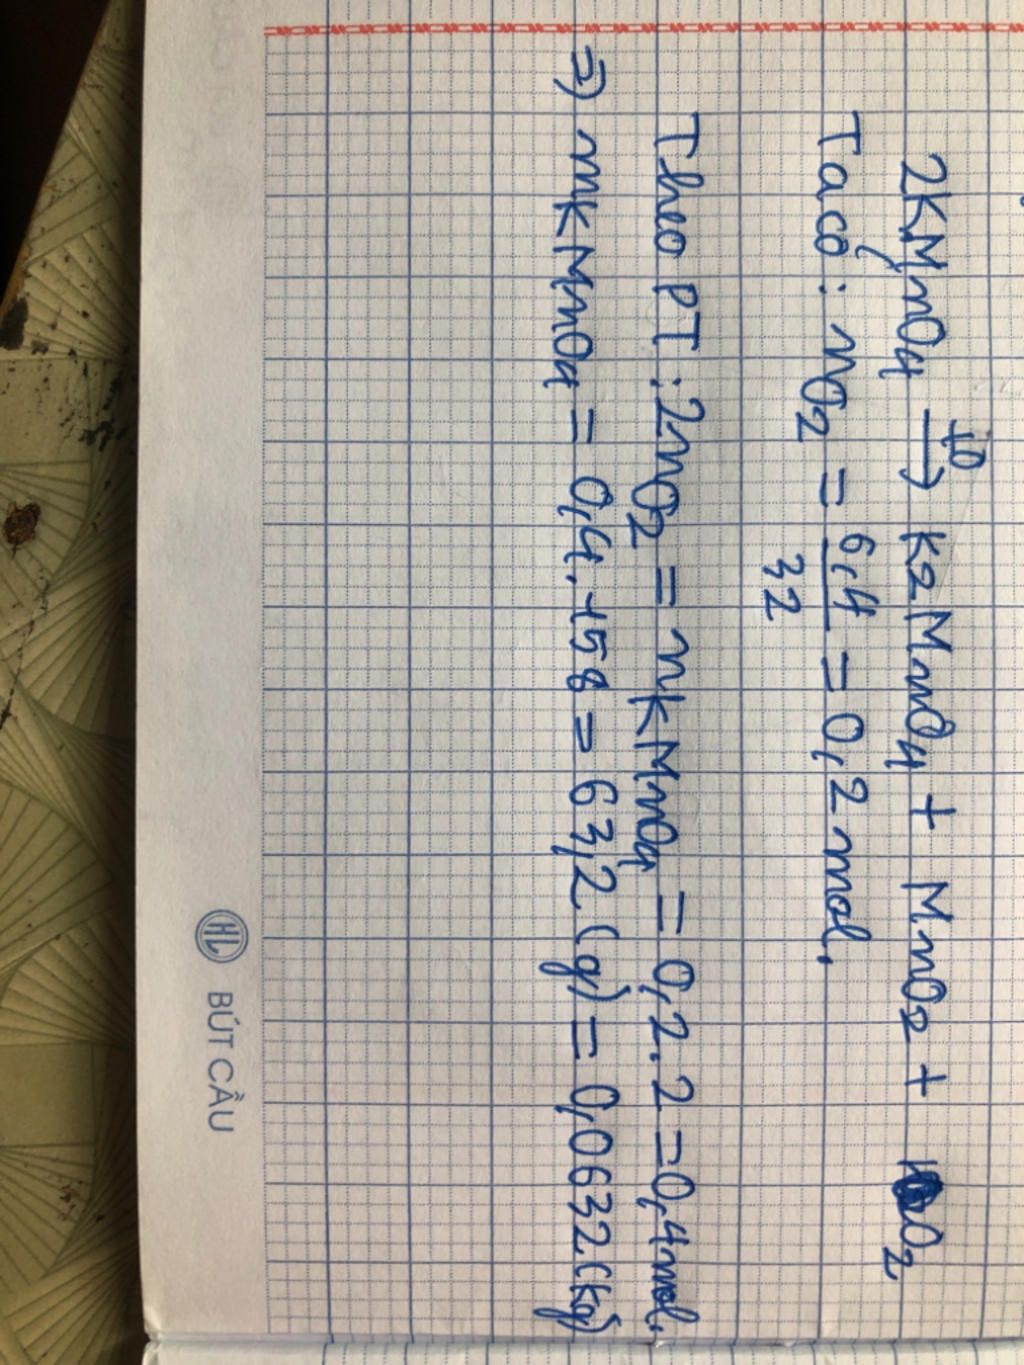 2KMnO4 →t0 K2MnO4 + MnO2 + O2
Ta có: nO2 = 6,4/32 = 0,2 mol.
Theo PT: 2nO2 = nKMnO4 = 0,2.2 = 0,4 mol.
=> mKMnO4 = 0,4.158 = 63,2 (g) = 0,0632 (kg)
HL BÚT CẦU